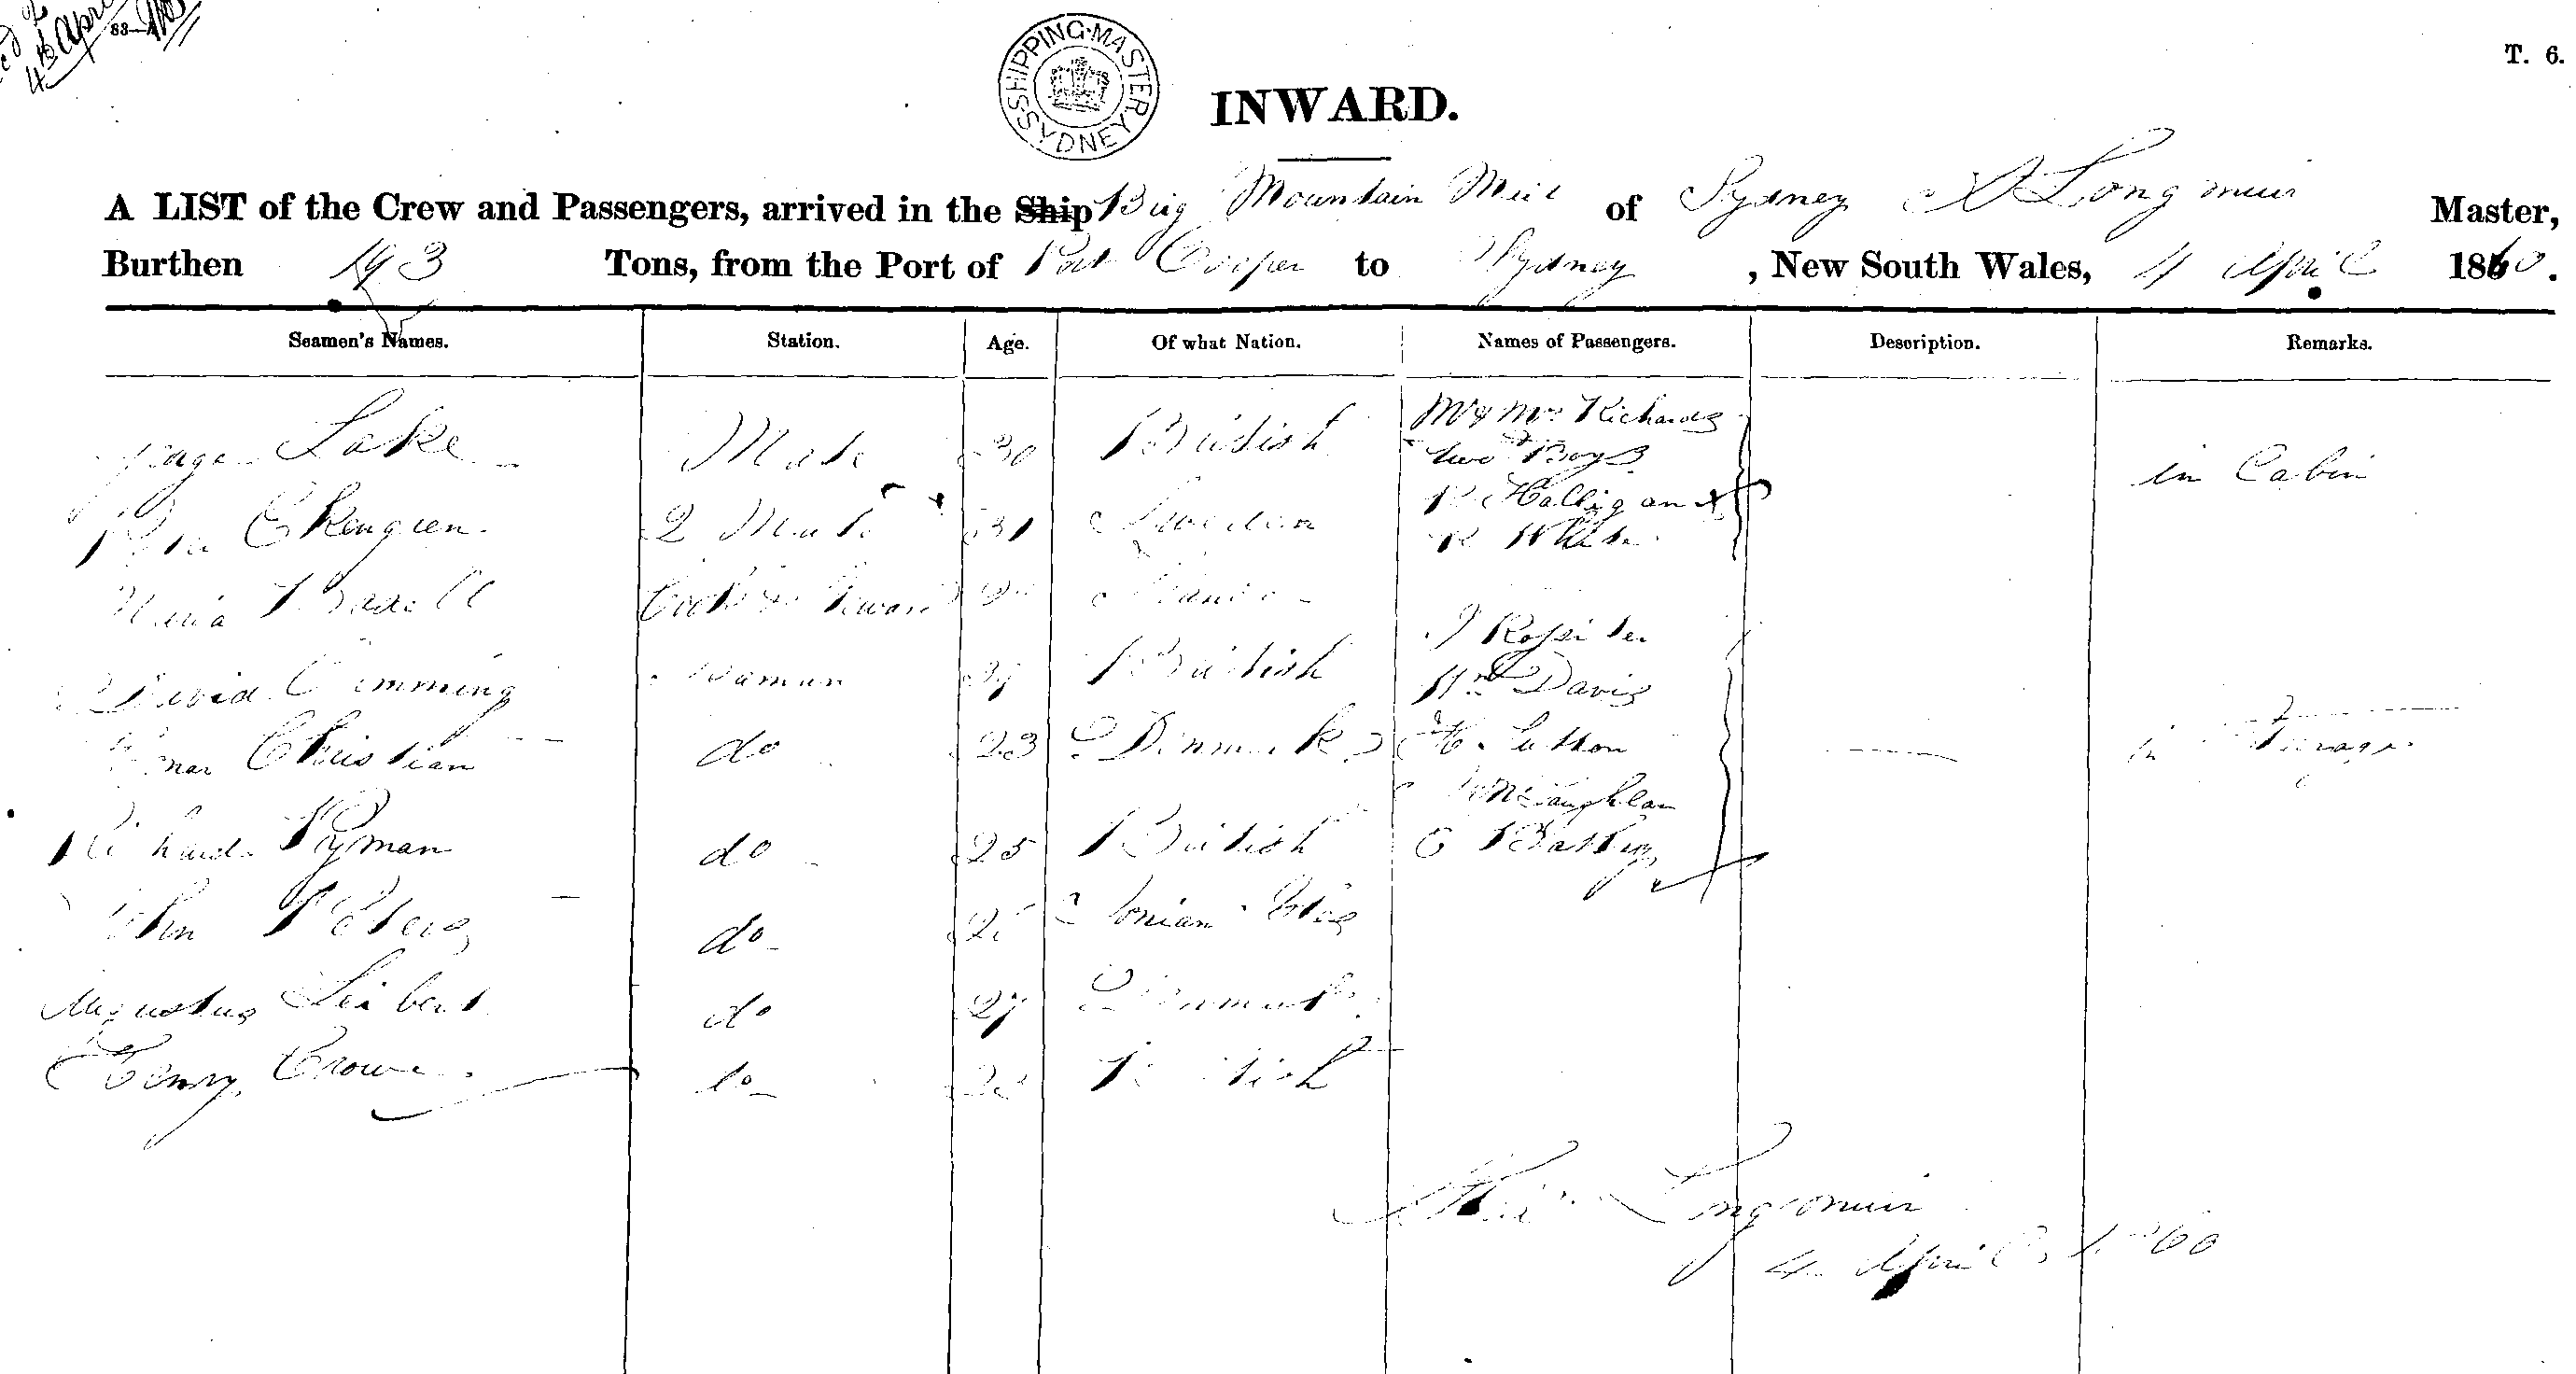 4th April
83—
SHIPPING MASTER SYDNEY
T. 6.
INWARD.
A LIST of the Crew and Passengers, arrived in the Ship Brig Mountain Maid of Sydney A Longmuir Master,
Burthen 193 Tons, from the Port of Port Cooper to Sydney, New South Wales, 4 April 1860.
Seamen's Names. Station. Age. Of what Nation. Names of Passengers. Description. Remarks.
Lake Mate 30 British Mr & Mrs Richards
two Boys in Cabin
2 Mate 31 Sweden R Halligan &
R White
Cook & Steward
J Rossiter
David Cumming Seaman 37 British Davis
Christian do 23 Denmark H. Sutton in Steerage
McLaughlan
Richard Pyman do 25 British
John Peters do Ionian Isles
Augustus Seibert do 27 Denmark
Henry Crowe do British
Longmuir
4 April 1860